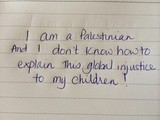 I am a Palestinian
And I don't know how to
explain this global injustice
to my children !